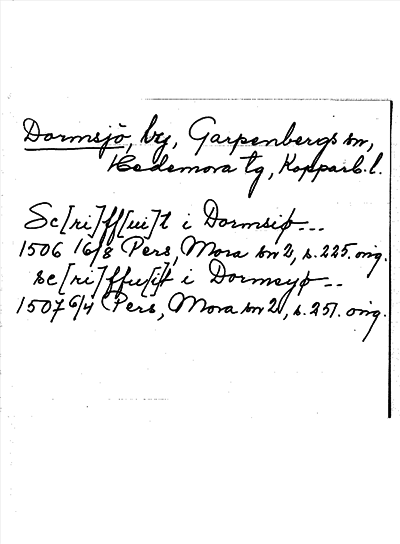 Dormsjö, by, Garpenbergs sn,
Hedemora tg, Kopparb. l.
Sc[ri]ff[ui]t i Dormsiø---
1506 16/8 Pers, Mora sn 2, s. 225. orig.
sc[ri]ffu[i]t i Dormsyø--
1507 6/4 Pers, Mora sn 2, s. 251. orig.